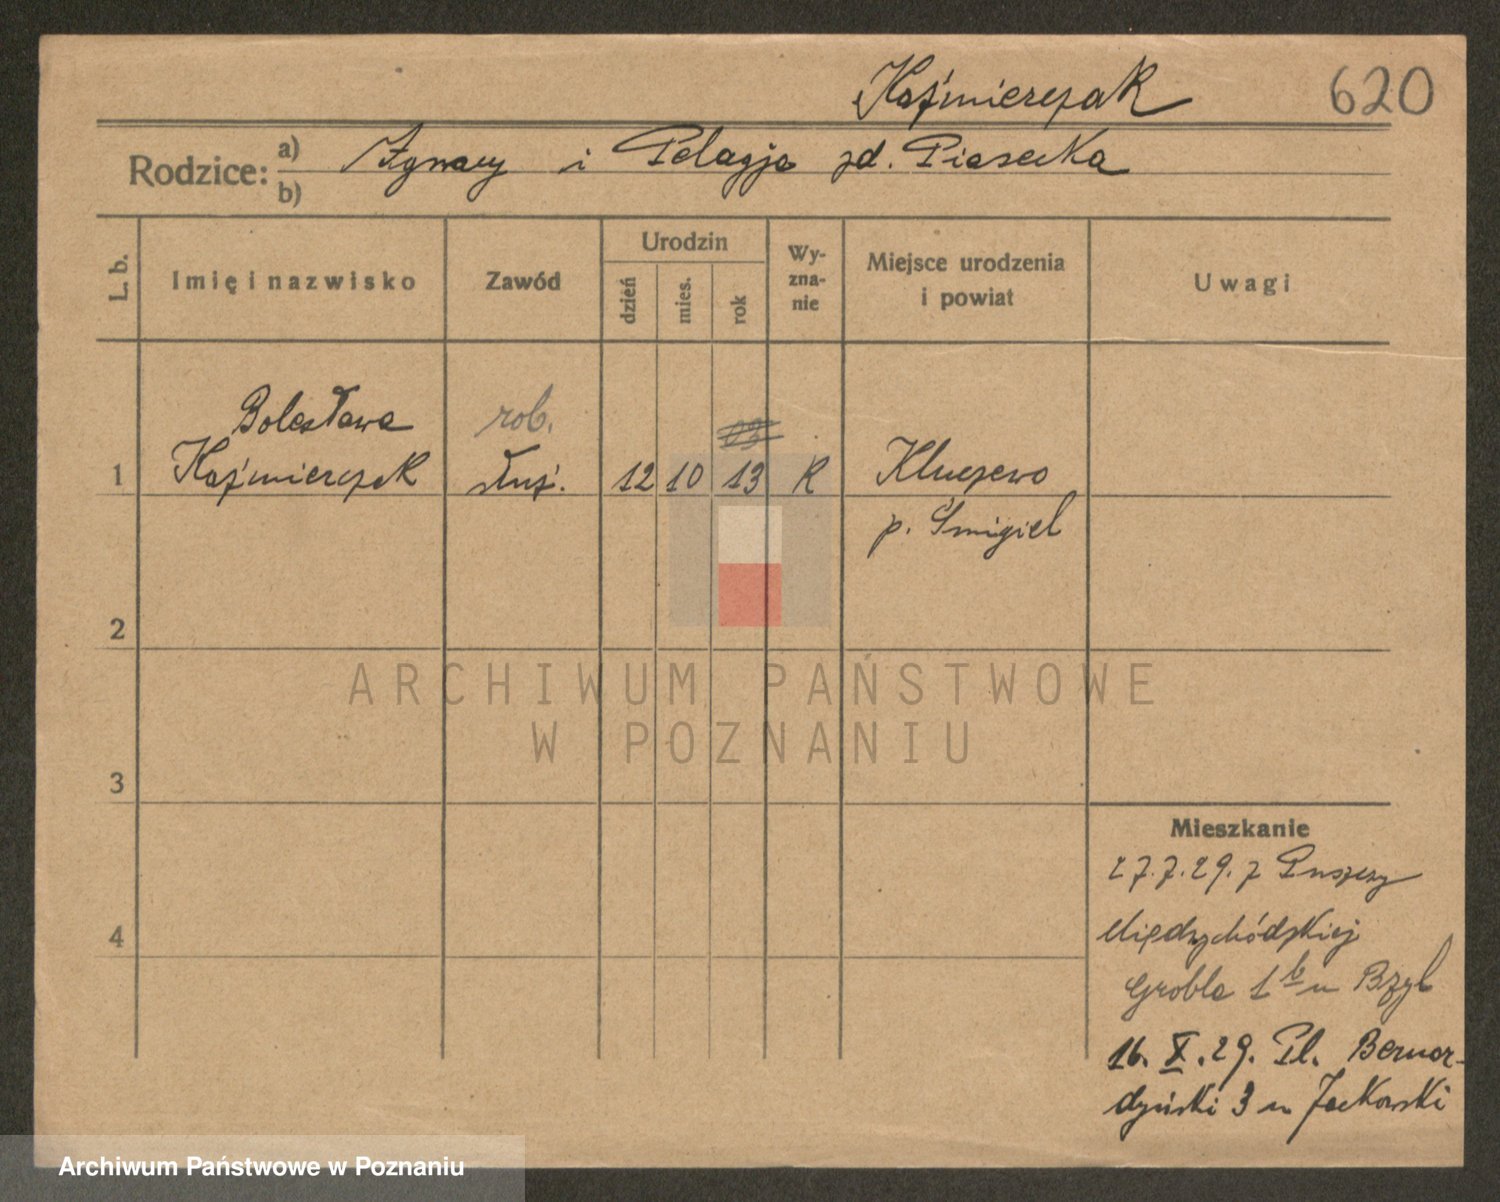 Kaźmierczak 620
Rodzice: a) b) Ignacy i Pelagja zd. Piasecka
L. b.
Imię i nazwisko
Zawód
Urodzin
dzień
mies.
rok
Wy-
zna-
nie
Miejsce urodzenia
i powiat
Uwagi
Bolesława rob.
1 Kaźmierczak służ. 12 10 13 R Kluczewo
p. Śmigiel
2
3
4
ARCHIWUM PAŃSTWOWE
W POZNANIU
Mieszkanie
27.7.29. z Puszczy
Międzychódzkiej
Grobla 1 b u Bzyl
16. X. 29. Pl. Bernar-
dyński 3 u Jackowski
Archiwum Państwowe w Poznaniu